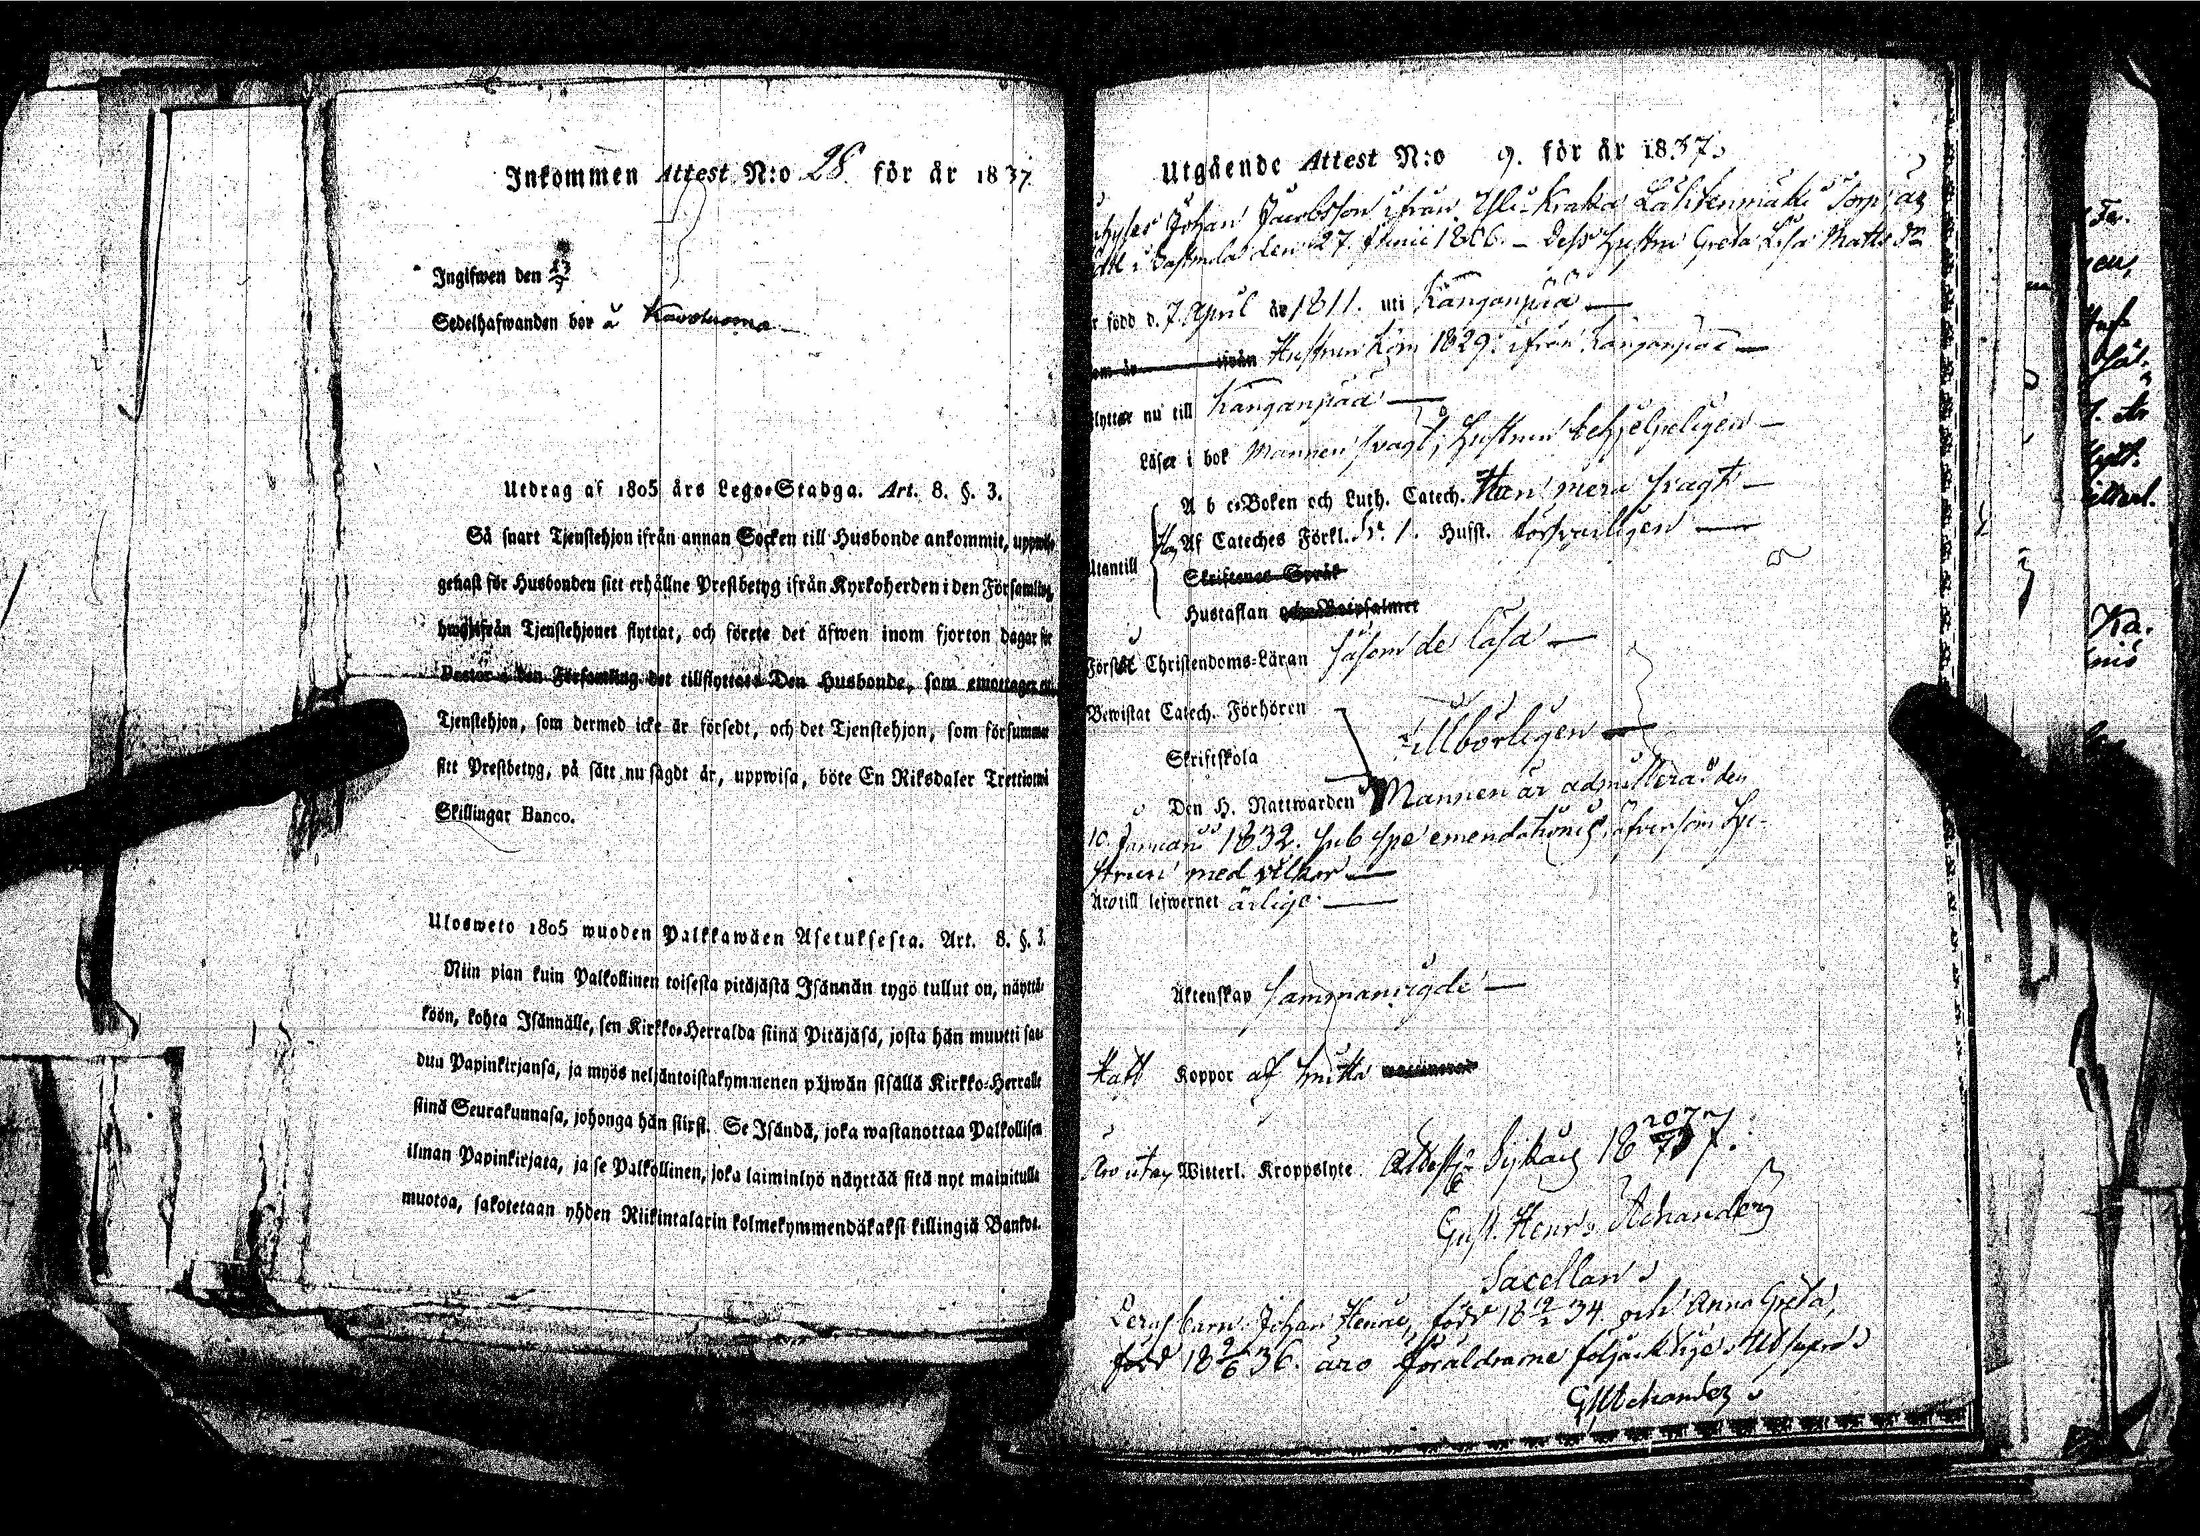 Inkommen Attest N:o 28. för år 1837.
Ingifwen den 23/7
Sedelhafwanden bor å
Utdrag af 1805 års Lego-Stadga. Art. 8. §. 3.
Så snart Tjenstehjon ifrån annan Socken till Husbonde ankommit,
genast för Husbonden sitt erhållne Prestbetyg ifrån Kyrkoherden i den Församling,
hwarifrån Tjenstehjonet flyttat, och förete det äfwen inom fjorton dagar för
Pastor i den Församling det tillflyttat. Den Husbonde, som emottager
Tjenstehjon, som dermed icke är försedt, och det Tjenstehjon, som försummar
sitt Prestbetyg, på sätt nu sagdt är, uppwisa, böte En Riksdaler Trettiotwå
Skillingar Banco.
Ulosweto 1805 wuoden Palkkawäen Asetuksesta. Art. 8. §. 3.
Niin pian kuin Palkollinen toisesta pitäjästä Isännän tygö tullut on, näyttä-
köön, kohta Isännälle, sen Kirkko-Herralda siinä Pitäjäsä, josta hän muutti saa-
dun Papinkirjansa, ja myös neljäntoistakymmenen päiwän sisällä Kirkko-Herralle
siinä Seurakunnasa, johonga hän siirsi. Se Isändä, joka wastanottaa Palkollisen
ilman Papinkirjata, ja se Palkollinen, joka laiminlyö näyttää sitä nyt mainitulla
muotoa, sakotetaan yhden Riikintalarin kolmekymmendäkaksi killingiä Bankos.
Utgående Attest N:o 9. för år 1837.
Johan Jacobsson ifrån Yli-Kraka Lähtenmäki Torp, är
i den 27 Junii 1806. – Dess hustru Greta Lisa Matts dr
r född d. 7 April år 1811. uti Kanganpää —
Hustrun kom 1829. ifrån Kanganpää —
flyttar nu till Kanganpää —
Läser i bok Mannen svagt, Hustrun behjelpeligen —
A b c-Boken och Luth. Catech. Han mera svagt —
Utantill Af Cateches Förkl. 1. Hust. försvarligen —
Skriftenes Språk
Hustaflan
Förstår Christendoms-Läran såsom de läsa —
Bewistat Catech. Förhören
Skriftskola
Tillbörligen —
Den H. Nattwarden Mannen är admitterad den
10. Januarii 1832. sub spe emendationis, äfvensom Hu-
strun med vilkor —
Äro till lefwernet ärlige —
Äktenskap sammanvigde —
Haft Koppor af
Äro utan Witterl. Kroppslyte.
Gust. Henr.
Sacellan.
barn Johan Henric, född 18 12/2 34. och Anna Greta,
född 18 2/6 36. äro föräldrarne följacktige. Ut supra